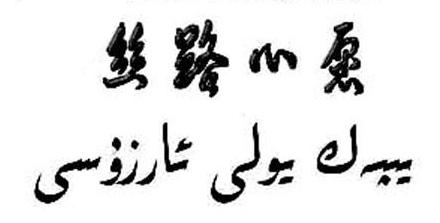 丝路心愿
يىپەك يولى ئارزۇسى